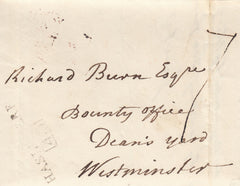 Richard Burn Esqre
Bounty office
Dean's yard
Westminster
7